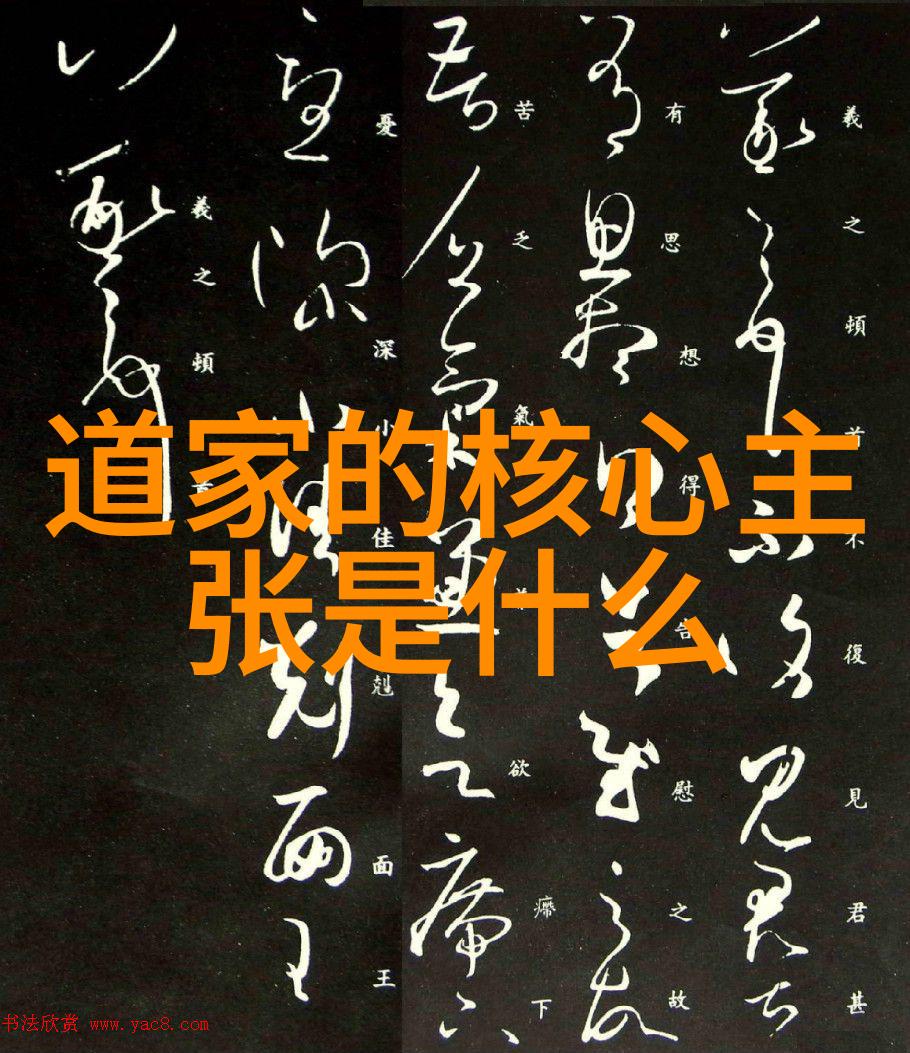 道家的核心主
张是什么
羲之頓首不復見君甚
有思想得告慰之故
苦乏氣欲㿃下
憂深小佳剋面王
羲之頓首
书法欣赏 www.yac8.com